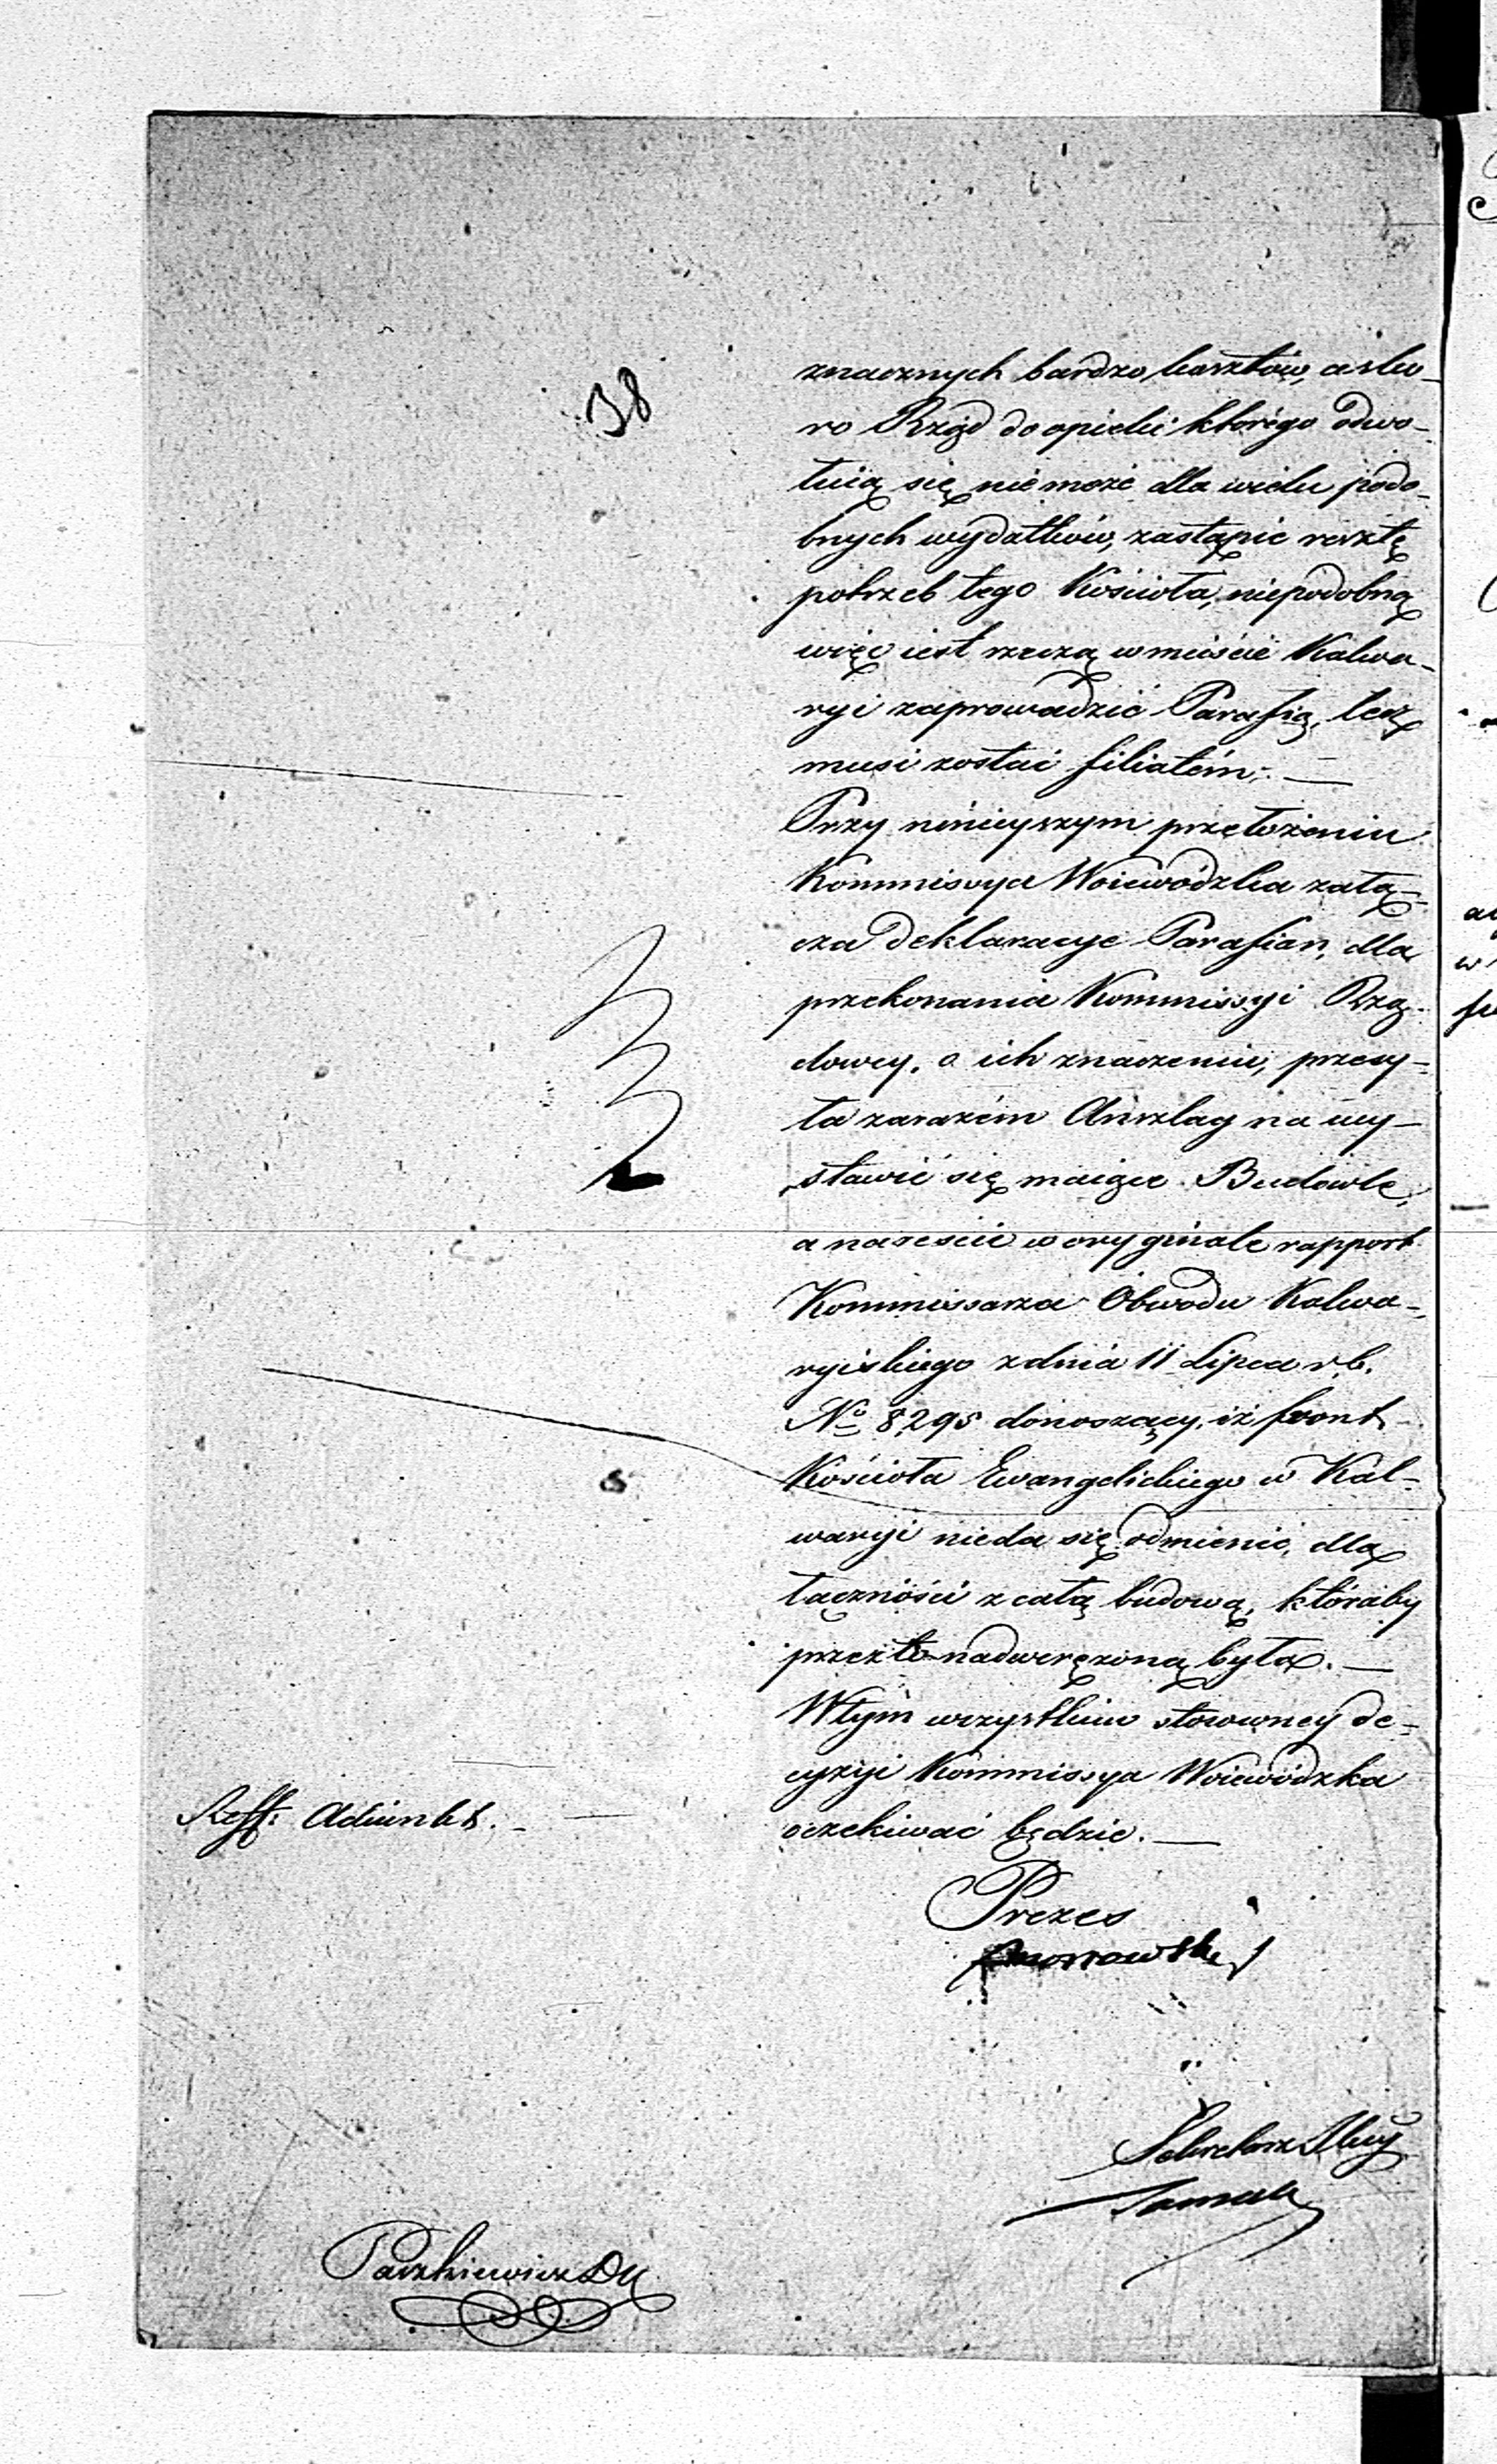 38
znacznych bardzo kosztów, a sko-
ro Rząd do opieki którego odwo-
łuią się niemoże dla wielu podo-
bnych wydatków, zastąpic resztę
potrzeb tego Kościoła, niepodobną
więc iest rzeczą w mieście Kalwa-
ryi zaprowadzić Parafią, lecz
musi zostać filiałem. —
Przy ninieyszym przełożeniu
Kommissya Woiewódzka załą-
cza deklaracye Parafian, dla
przekonania Kommissyi Rzą-
dowey, o ich znaczeniu, przesy-
ła zarazem Anszlag na wy-
stawić się maiące Budowle,
a nareście w oryginale rapport
Kommissarza Obwodu Kalwa-
ryiskiego z dnia 11 Lipca r. b.
No 8,295 donoszący, iż front
Kościoła Ewangelickiego w Kal-
waryi nieda się odmienić, dla
łączności z całą budową, któraby
przez to nadwerężoną była. —
W tym wszystkim stosowney de-
cyzyi Kommissya Woiewódzka
oczekiwać będzie. —
Reff: Adiunkt. —
Prezes
Sekretarz Jlny
Paszkiewicz